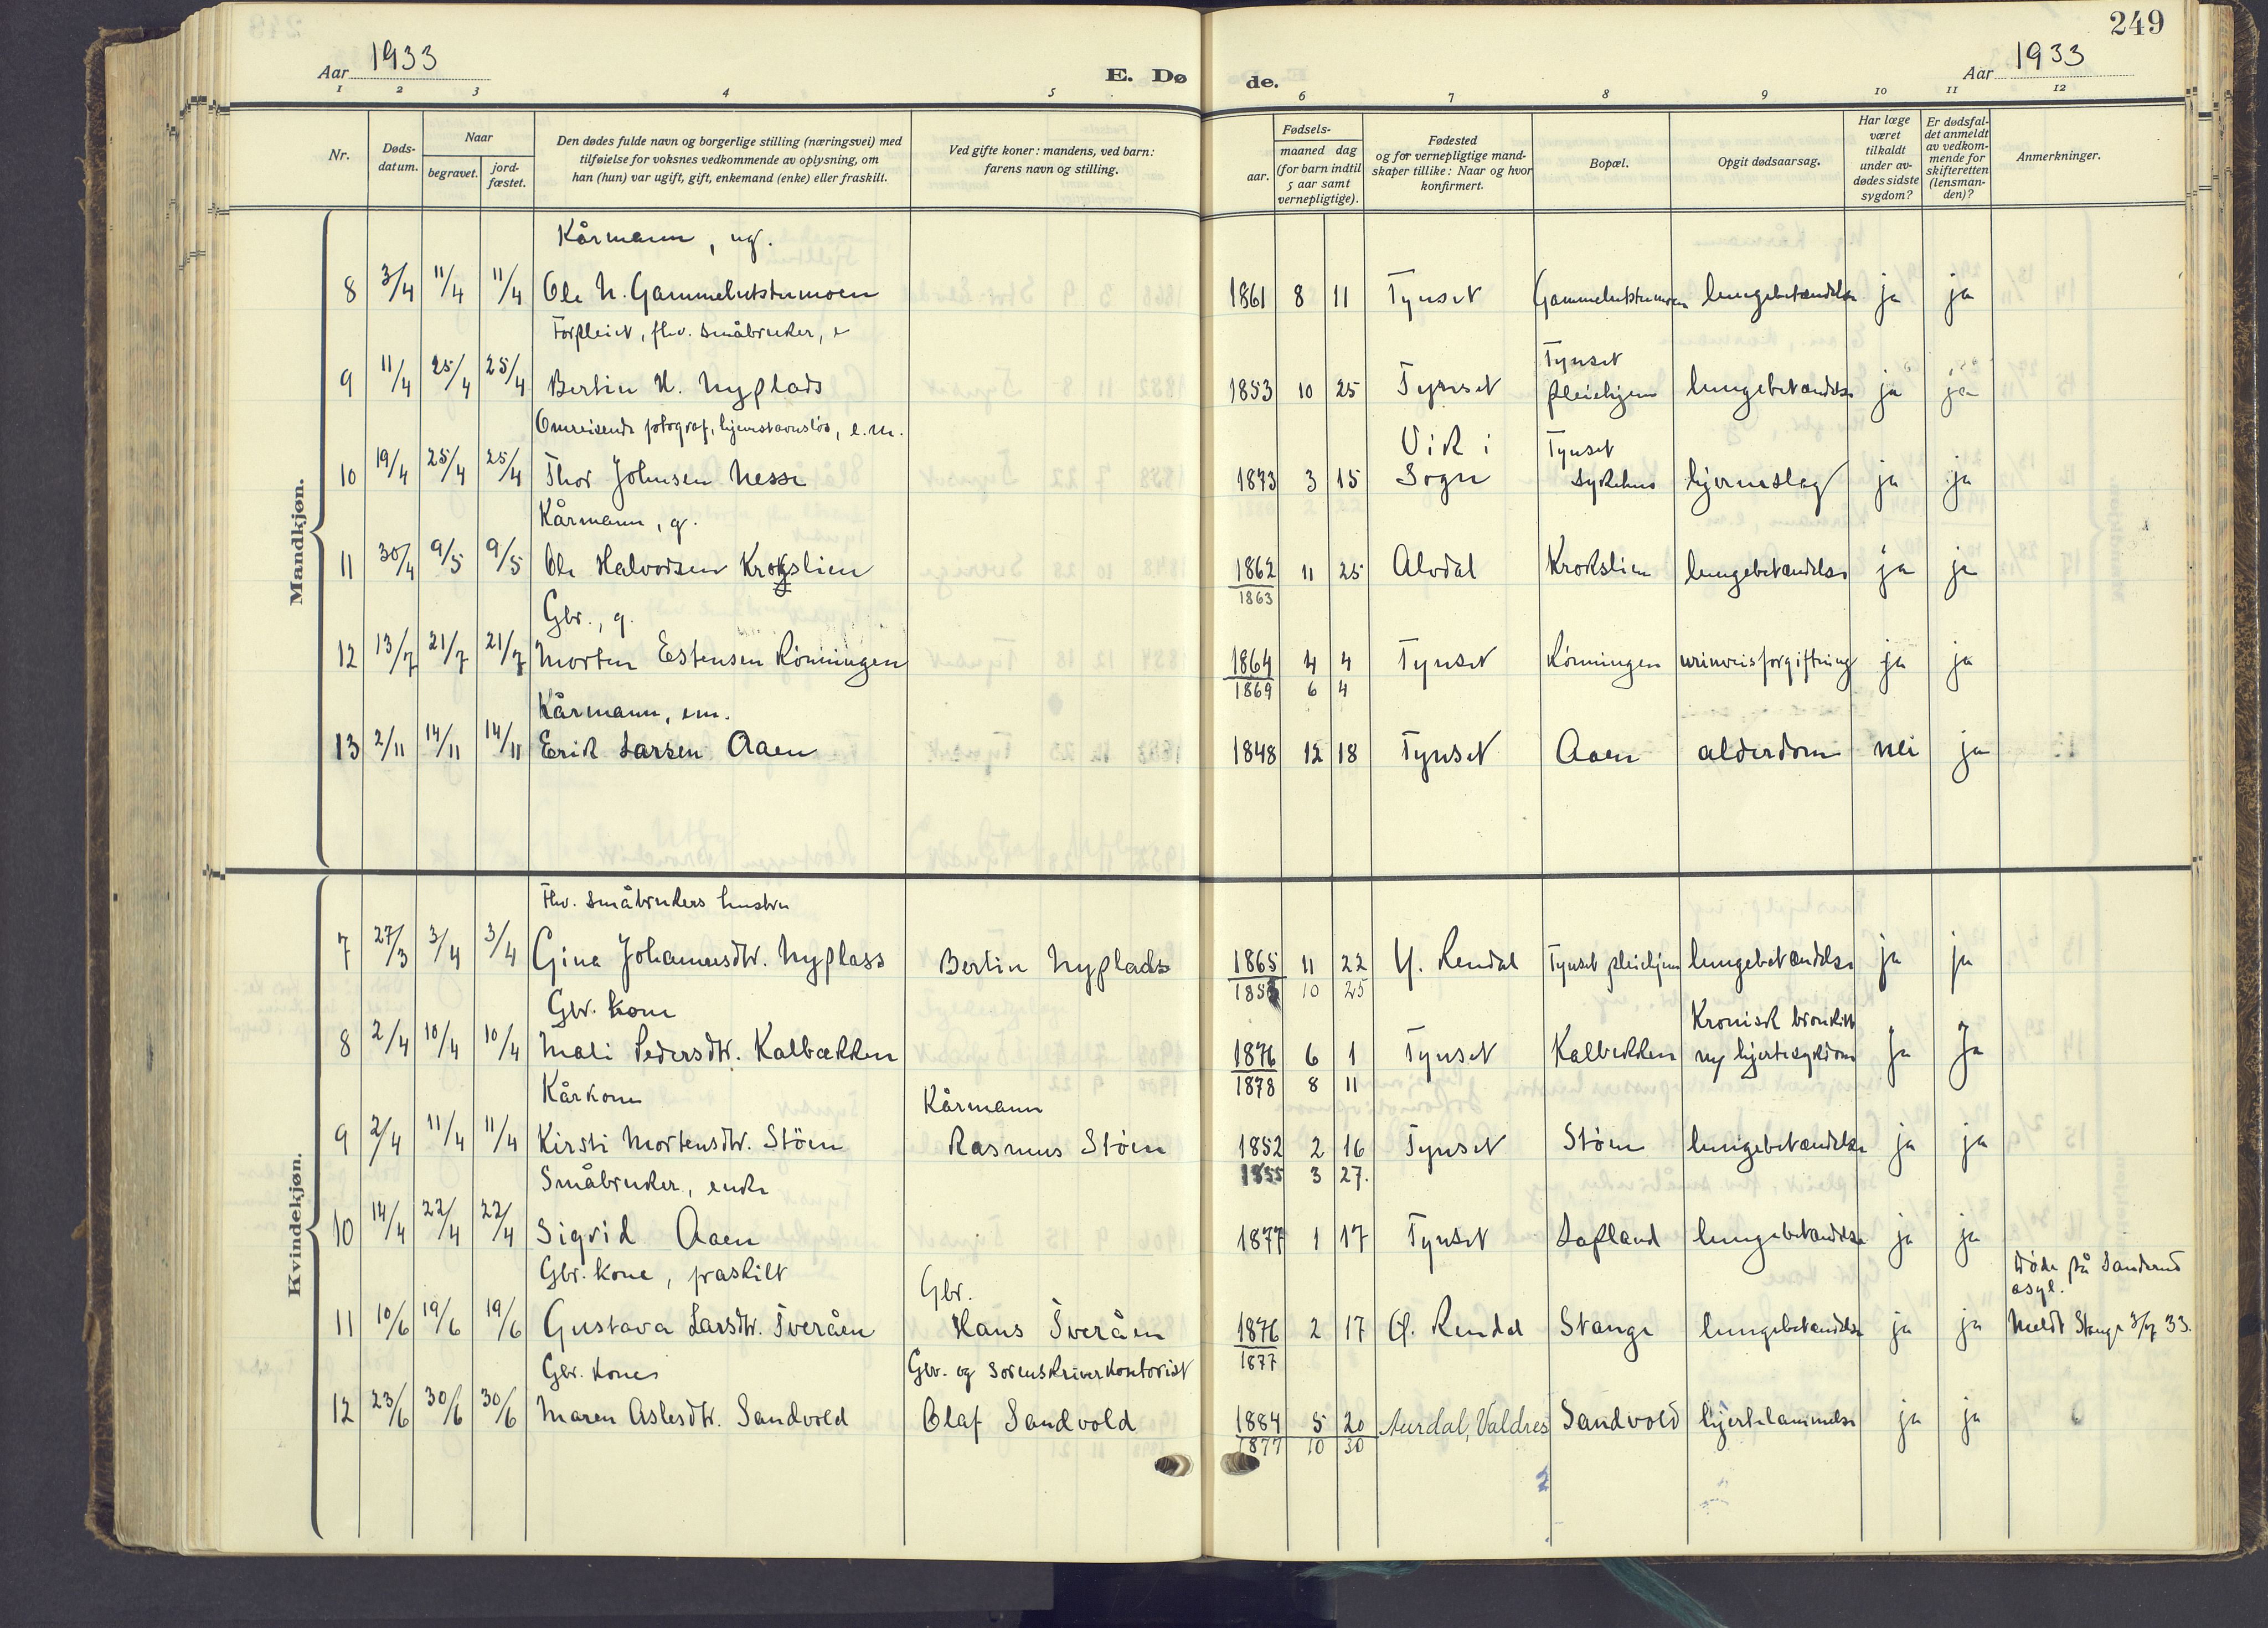 249
Aar 1933
E. Døde.
Aar 1933
1 2 3 4 5 6 7 8 9 10 11 12
Nr.
Døds-datum.
Naar
begravet.
jord-fæstet.
Den dødes fulde navn og borgerlige stilling (næringsvei) med
tilføielse for voksnes vedkommende av oplysning, om
han (hun) var ugift, gift, enkemand (enke) eller fraskilt.
Ved gifte koner: mandens, ved barn:
farens navn og stilling.
Fødsels-
aar.
maaned dag
(for barn indtil
5 aar samt
vernepligtige).
Fødested
og for vernepligtige mand-
skaper tillike: Naar og hvor
konfirmert.
Bopæl.
Opgit dødsaarsag.
Har læge
været
tilkaldt
under av-
dødes sidste
sygdom?
Er dødsfal-
det anmeldt
av vedkom-
mende for
skifteretten
(lensman-
den)?
Anmerkninger.
Mandkjøn.
Kårmann, ug.
8 3/4 11/4 11/4 Ole N. Gammelutstumoen 1861 8 11 Tynset Gammelutstumoen lungebetændelse ja ja
Forpleiet, fhv. småbruker, e
9 11/4 25/4 25/4 Bertin H. Nyplads 1853 10 25 Tynset Tynset pleiehjem lungebetændelse ja ja
Omreisende fotograf, hjemstavnsløs, e.m.
10 19/4 25/4 25/4 Thor Johnsen Nesse 1873 3 15 Vik i Sogn Tynset sykehus hjerneslag ja ja
Kårmann, g.
11 30/4 9/5 9/5 Ole Halvorsen Krokslien 1862 11 25 Alvdal Krokslien lungebetændelse ja ja
1863
Gbr., g.
12 13/7 21/7 21/7 Morten Estensen Rönningen 1864 4 4 Tynset Rönningen urinveisforgiftning ja ja
1869 6 4
Kårmann, em.
13 2/11 14/11 14/11 Erik Larsen Aaen 1848 12 18 Tynset Aaen alderdom nei ja
Kvindekjøn.
Fhv. småbrukers hustru
7 27/3 3/4 3/4 Gina Johannesdtr. Nyplass Bertin Nyplads 1865 11 22 Y. Rendal Tynset pleiehjem lungebetændelse ja ja
1853 10 25
Gbr. kone
8 2/4 10/4 10/4 Mali Pedersdtr. Kalbækken 1876 6 1 Tynset Kalbekken Kronisk bronkitt og hjertesykdom ja ja
1878 8 11
Kårkone
9 2/4 11/4 11/4 Kirsti Mortensdtr. Stöen Kårmann Rasmus Stöen 1852 2 16 Tynset Støen lungebetændelse ja ja
1855 3 27.
Småbruker, enke
10 14/4 22/4 22/4 Sigrid Aaen 1877 1 17 Tynset Lofland lungebetændelse ja ja
Gbr. kone, fraskilt
11 10/6 19/6 19/6 Gustava Larsdtr. Tveråen Gbr. Hans Tveråen 1876 2 17 Ø. Rendal Stange lungebetændelse ja ja Døde på Sanderud asyl. Meldt Stange 3/7 33.
1877
Gbr. kone
12 23/6 30/6 30/6 Maren Aslesdtr. Sandvold Gbr. og sorenskriverkontorist Olaf Sandvold 1884 5 20 Aurdal, Valdres Sandvold hjertelammelse ja ja
1877 10 30